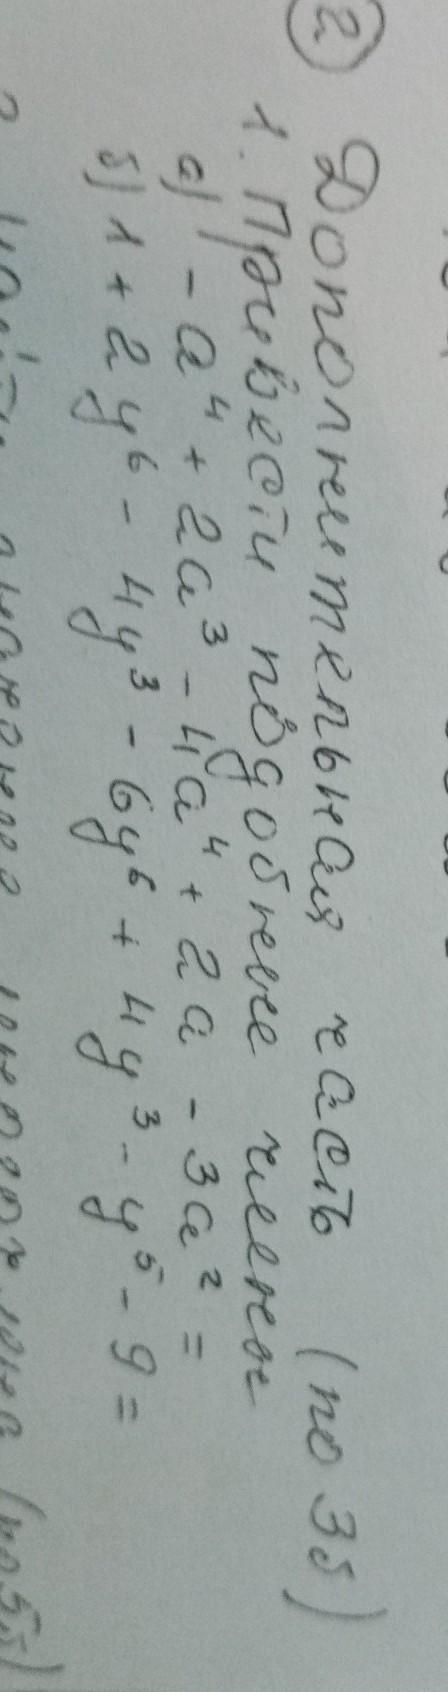 2 Дополнительная часть (по 3б)
1. Привести подобные члены
а) - a⁴ + 2a³ - 4a⁴ + 2a - 3a² =
б) 1 + 2y⁶ - 4y³ - 6y⁶ + 4y³ - y⁵ - 9 =